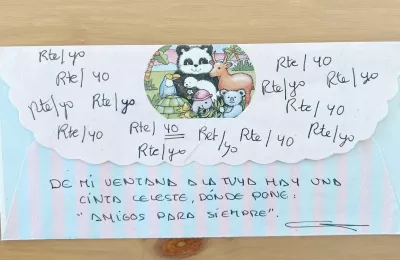 Rte/yo
Rte/yo
Rte/yo
Rte/yo
Rte/yo
Rte/yo
Rte/yo
Rte/yo
Rte/yo
Rte/yo
Rte/yo
Ret/yo
Rte/yo
Rte/yo
Rte/yo
DE MI VENTANA A LA TUYA HAY UNA
CINTA CELESTE, DÓNDE PONE:
"AMIGOS PARA SIEMPRE".